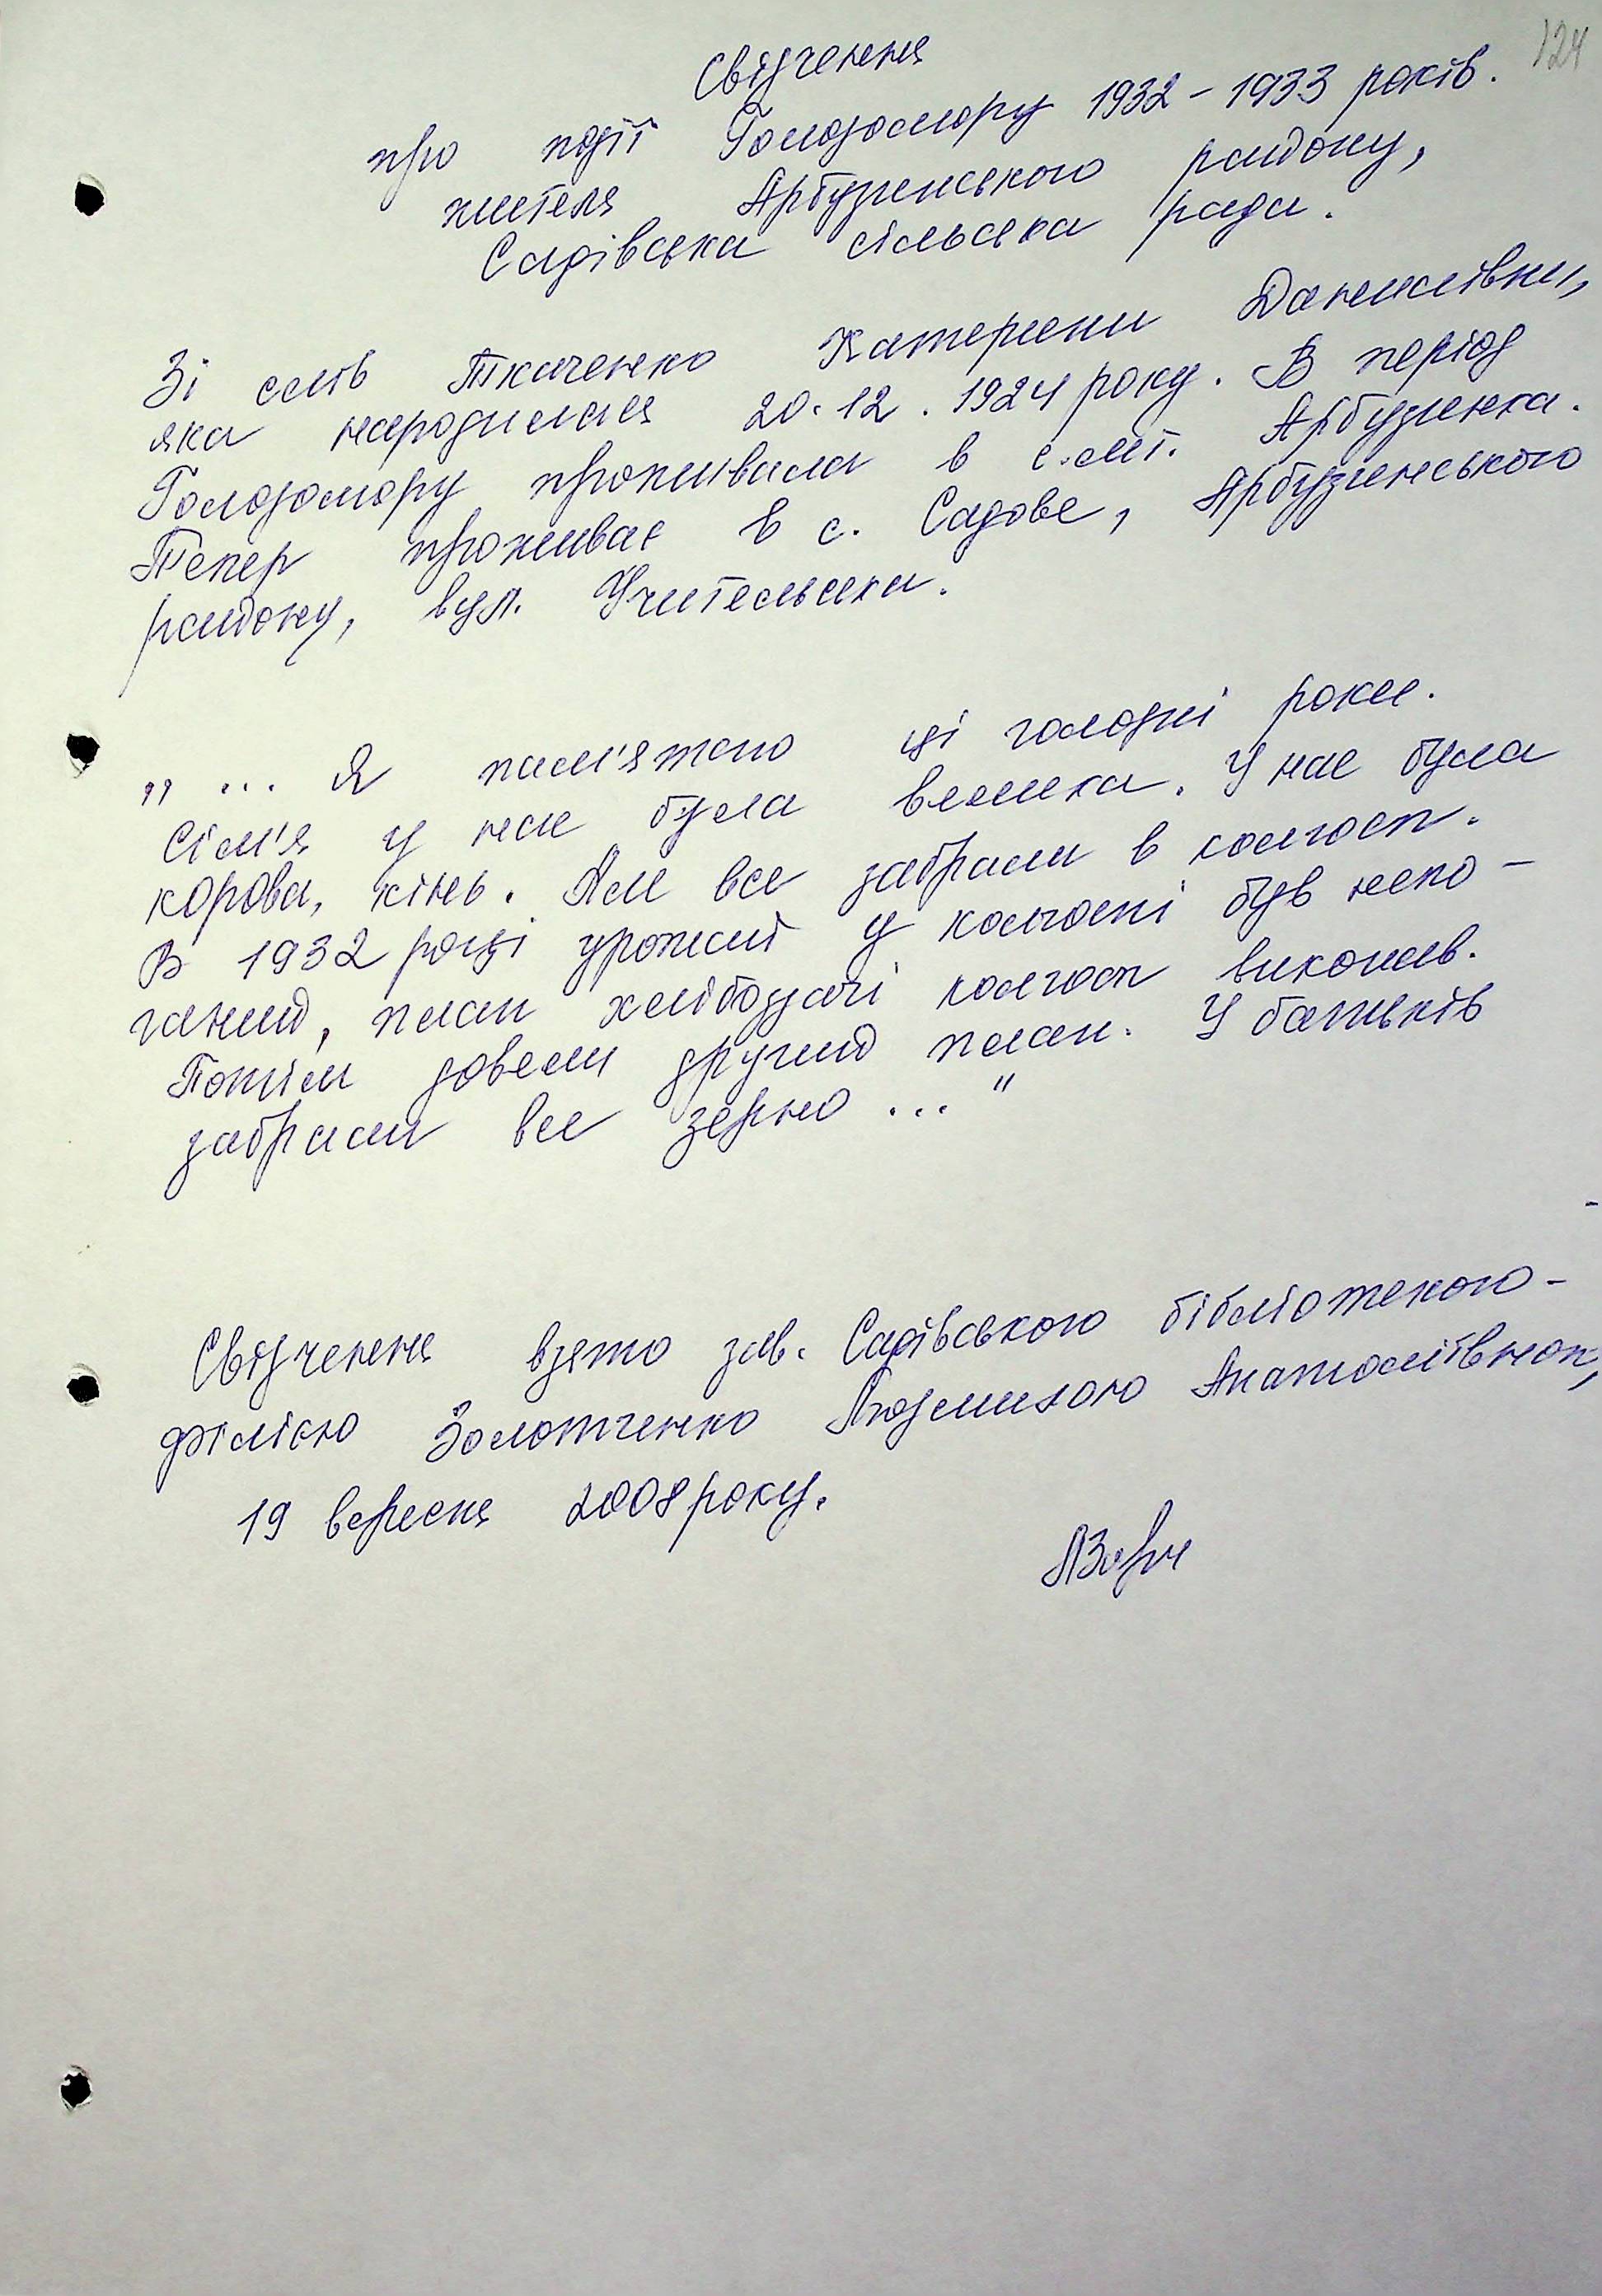 124
Свідчення
про події Голодомору 1932-1933 років.
жителя Арбузинського району,
Садівська сільська рада.
Зі слів Ткаченко Катерини Данилівни,
яка народилася 20.12.1924 року. В період
Голодомору проживала в с.мт. Арбузинка.
Тепер проживає в с. Садове, Арбузинського
району, вул. Учительська.
„ ... Я пам'ятаю ці голодні роки.
Сім'я у нас була велика. У нас була
корова, кінь. Але все забрали в колгосп.
В 1932 році урожай у колгоспі був непо-
ганий, план хлібоздачі колгосп виконав.
Потім довели другий план. У батьків
забрали все зерно ... "
Свідчення взято зав. Садівською бібліотекою-
філією Золотченко Людмилою Анатоліївною,
19 вересня 2008 року.